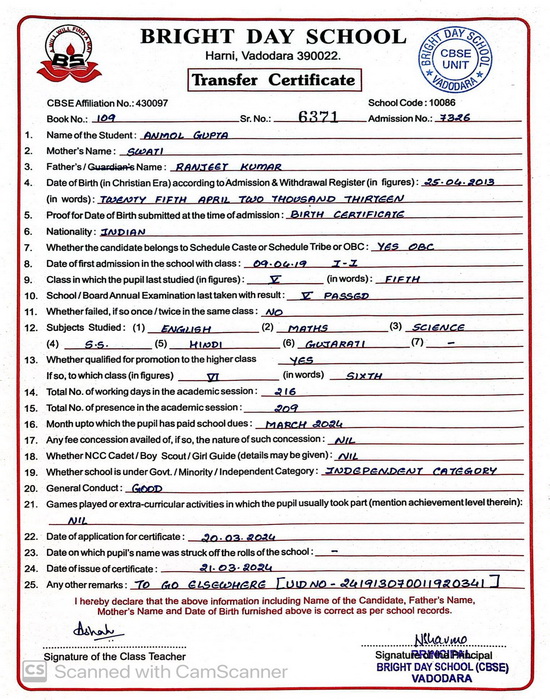 A WILL WILL FIND A WAY
BS
BRIGHT DAY SCHOOL
Harni, Vadodara 390022.
Transfer Certificate
BRIGHT DAY SCHOOL
CBSE
UNIT
VADODARA
CBSE Affiliation No.: 430097 School Code : 10086
Book No.: 109 Sr. No.: 6371 Admission No.: 7326
1. Name of the Student : ANMOL GUPTA
2. Mother's Name : SWATI
3. Father's / Guardian's Name : RANJEET KUMAR
4. Date of Birth (in Christian Era) according to Admission & Withdrawal Register (in figures) : 25.04.2013
(in words) : TWENTY FIFTH APRIL TWO THOUSAND THIRTEEN
5. Proof for Date of Birth submitted at the time of admission : BIRTH CERTIFICATE
6. Nationality : INDIAN
7. Whether the candidate belongs to Schedule Caste or Schedule Tribe or OBC : YES OBC
8. Date of first admission in the school with class : 09.04.19 I-I
9. Class in which the pupil last studied (in figures) : V (in words) : FIFTH
10. School / Board Annual Examination last taken with result : V PASSED
11. Whether failed, if so once / twice in the same class : NO
12. Subjects Studied : (1) ENGLISH (2) MATHS (3) SCIENCE
(4) S.S. (5) HINDI (6) GUJARATI (7) -
13. Whether qualified for promotion to the higher class YES
If so, to which class (in figures) VI (in words) SIXTH
14. Total No. of working days in the academic session : 216
15. Total No. of presence in the academic session : 209
16. Month upto which the pupil has paid school dues : MARCH 2024
17. Any fee concession availed of, if so, the nature of such concession : NIL
18. Whether NCC Cadet / Boy Scout / Girl Guide (details may be given) : NIL
19. Whether school is under Govt. / Minority / Independent Category : INDEPENDENT CATEGORY
20. General Conduct : GOOD
21. Games played or extra-curricular activities in which the pupil usually took part (mention achievement level therein) :
NIL
22. Date of application for certificate : 20.03.2024
23. Date on which pupil's name was struck off the rolls of the school : -
24. Date of issue of certificate : 21.03.2024
25. Any other remarks : TO GO ELSEWHERE [UID NO - 241913070011920341]
I hereby declare that the above information including Name of the Candidate, Father's Name,
Mother's Name and Date of Birth furnished above is correct as per school records.
Signature of the Class Teacher Signature of the Principal
PRINCIPAL
BRIGHT DAY SCHOOL (CBSE)
VADODARA
CS Scanned with CamScanner